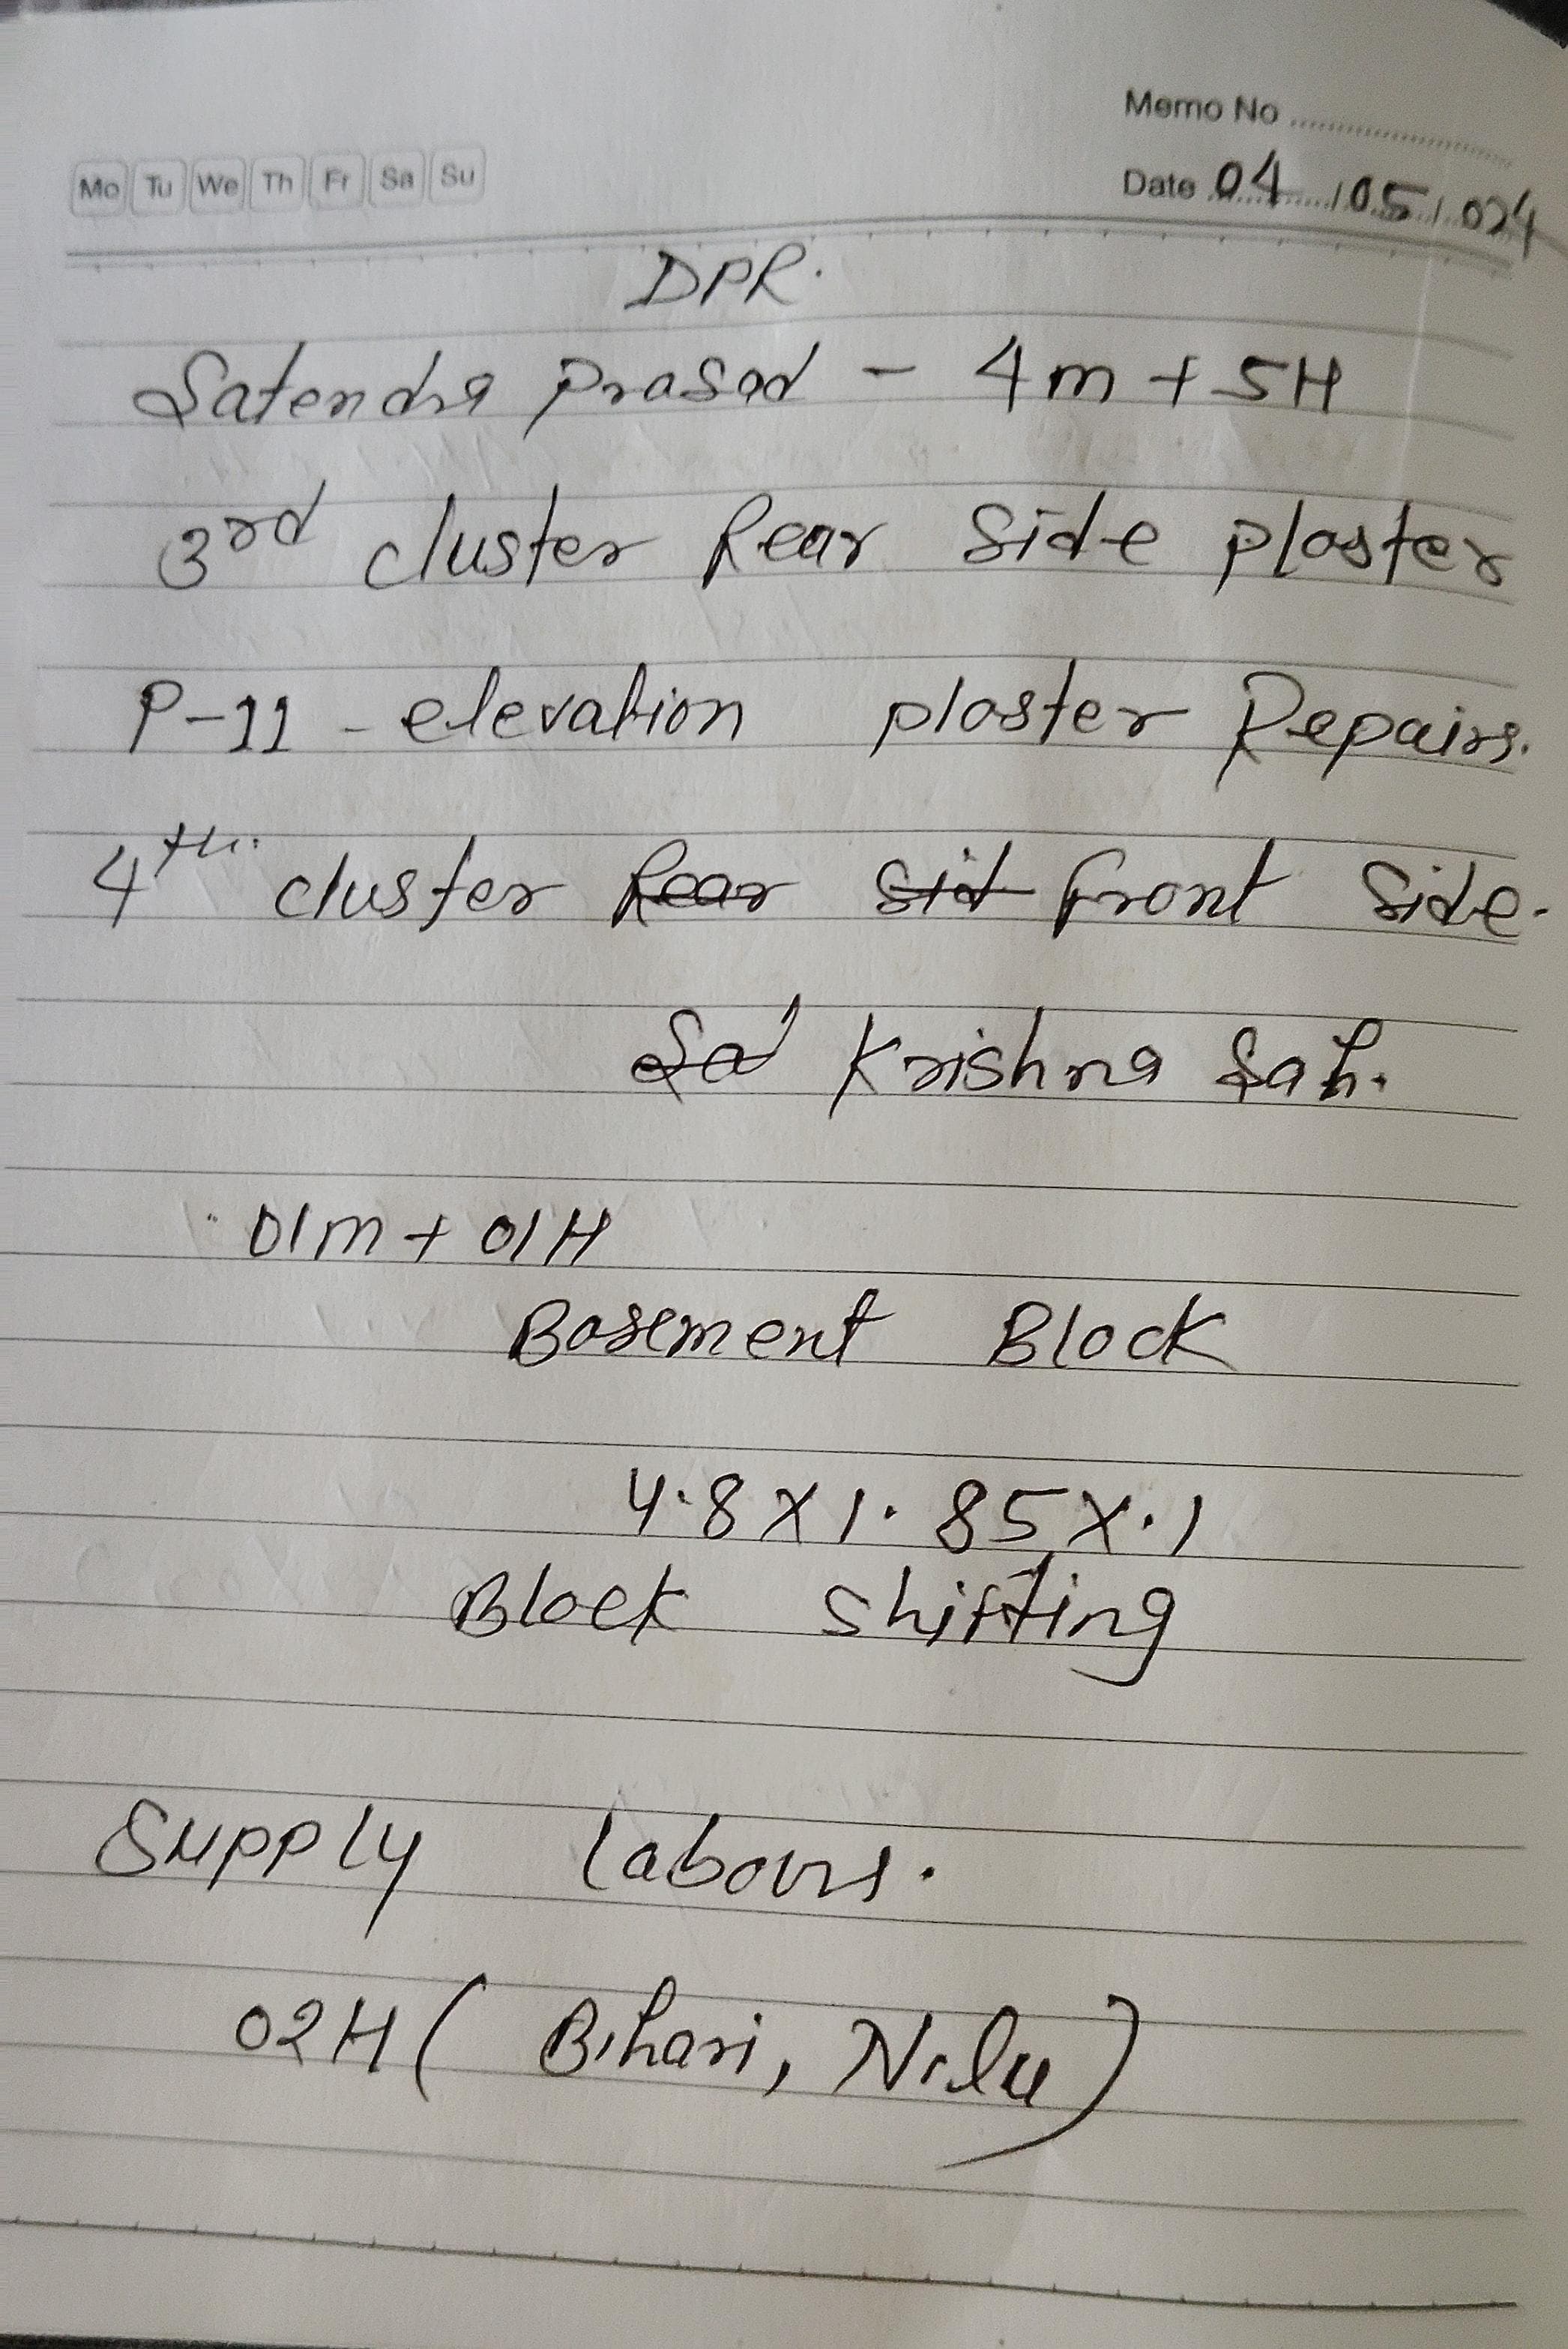 Memo No
Mo Tu We Th Fr Sa Su
Date 04/05/024
DPR.
Satendra Prasad - 4m + 5H
3rd cluster Rear Side plaster
P-11 - elevation plaster Repairs.
4th. cluster Rear Sid front Side.
Sa Krishna Sah.
01m + 01H
Basement Block
4.8 X 1.85 X .1
Block shifting
Supply labours.
02H ( Bihari, Nilu )